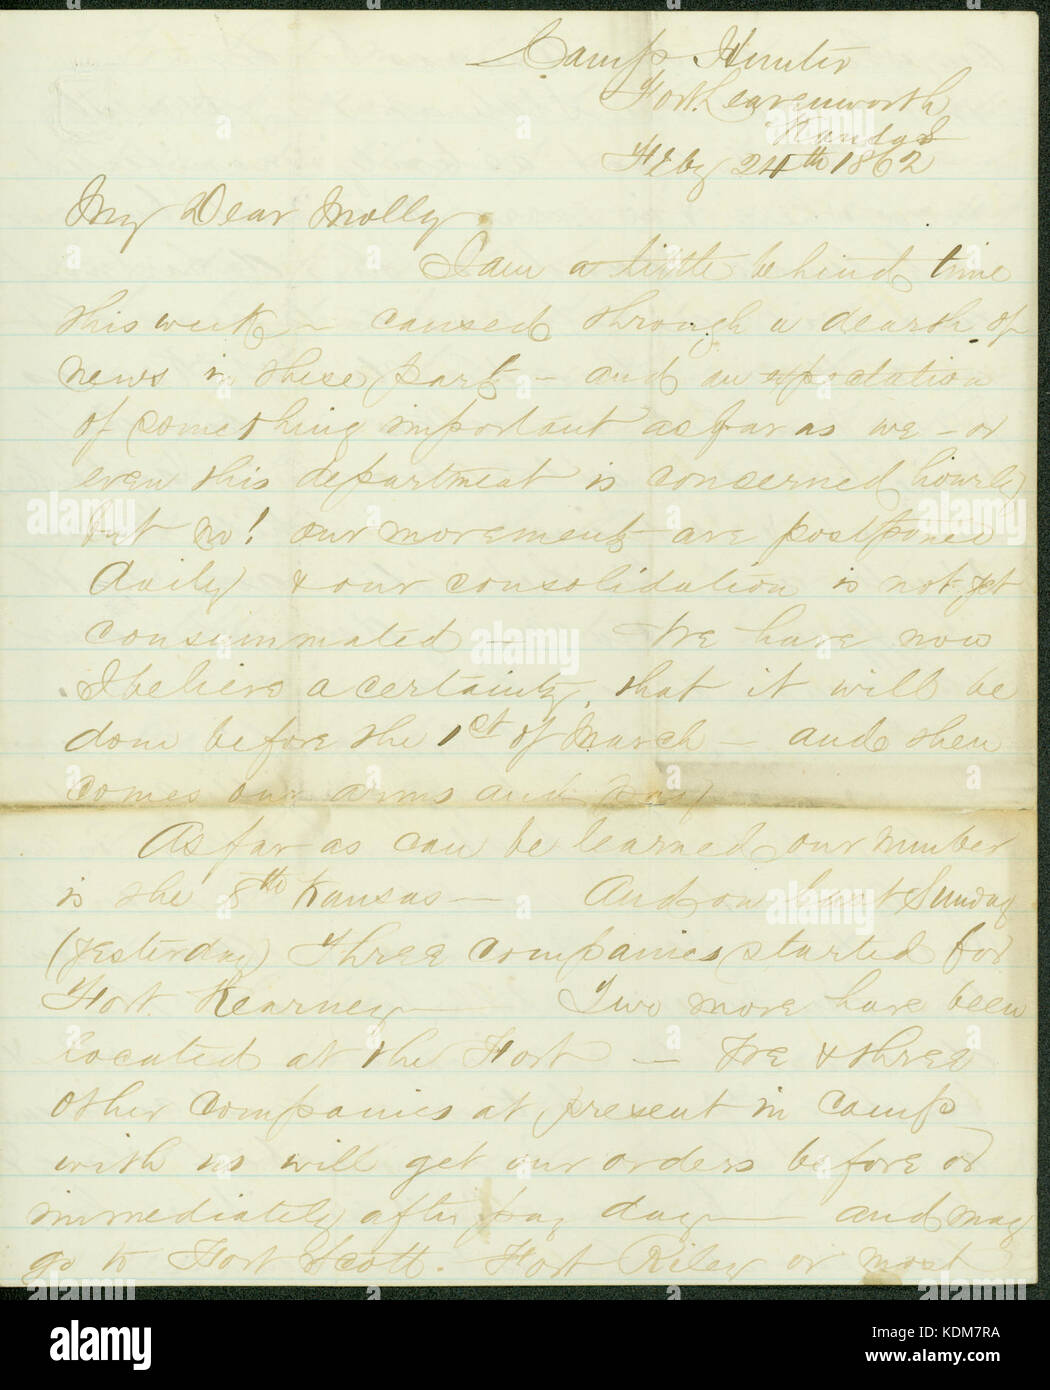 Camp Hunter
Fort Leavenworth
Kansas
Feby 24th 1862
My Dear Molly.
I am a little behind time
this week – caused through a dearth of
news in these parts – and an expectation
of something important as far as we – or
even this department is concerned hourly
but no! our movements are postponed
daily & our consolidation is not yet
consummated – We have now
I believe a certainty, that it will be
done before the 1st of March – and then
comes our arms and pay
As far as can be learned our number
is the 8th Kansas – And on last Sunday
(yesterday) Three companies started for
Fort Kearney – Two more have been
located at the Fort – We & three
other companies at present in camp
with us will get our orders before or
immediately after pay day – and may
go to Fort Scott. Fort Riley or most
alamy
alamy
Image ID: KDM7RA
www.alamy.com